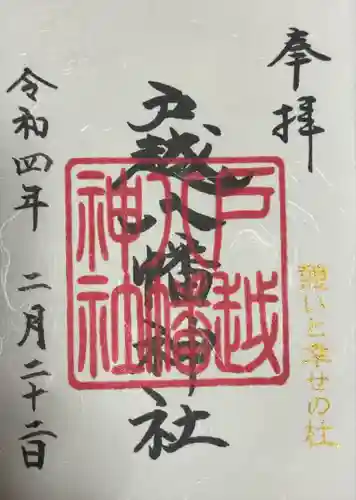 奉拝
憩いと幸せの杜
戸越八幡神社
戸越
八幡
神社
令和四年 二月二十二日